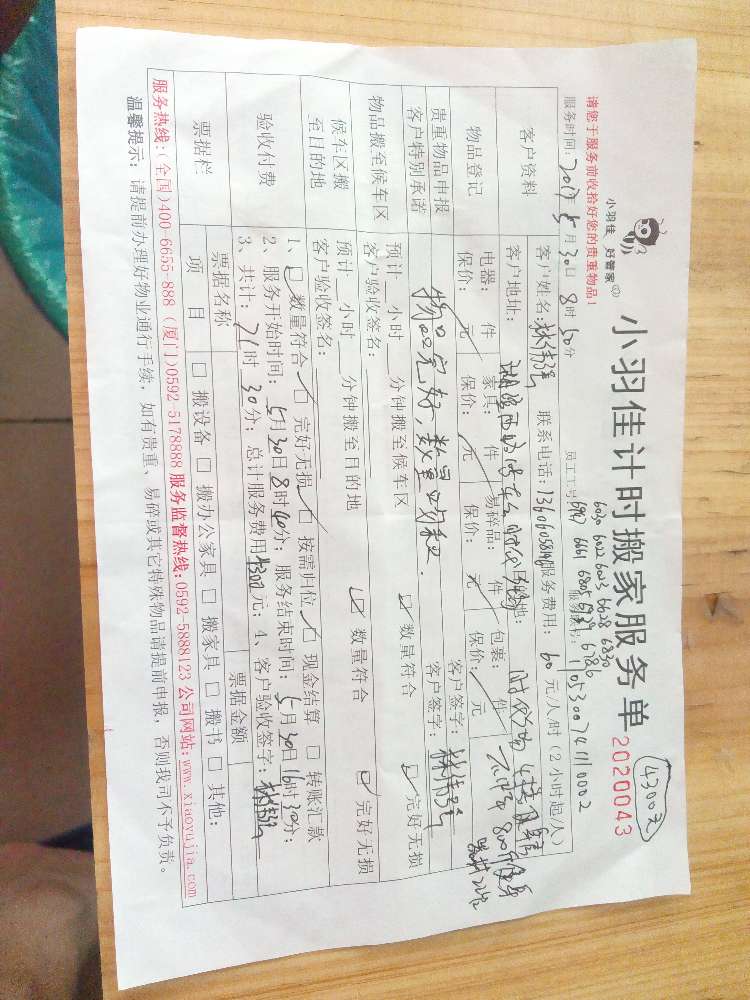 小羽佳 好管家
小羽佳计时搬家服务单
4300元
2020043
请您于服务前收拾好您的贵重物品!
员工工号:
服务时间:2017年5月30日8时30分
客户资料
客户姓名:林伟强 联系电话: 服务费用:60元/小时(2小时起/人)
客户地址:
物品登记
电器: 件 家具: 件 易碎品: 件 包裹: 件
保价: 元 保价: 元 保价: 元 保价: 元
贵重物品申报
客户特别承诺
物品完好,数量
客户签字:
客户签字:林伟强
物品搬至候车区
预计 小时 分钟搬至候车区 数量符合 完好无损
客户验收签名:
候车区搬
至目的地
预计 小时 分钟搬至目的地 数量符合 完好无损
客户验收签名:
验收付费
1、数量符合 完好无损 按需归位 现金结算 转账汇款
2、服务开始时间:5月30日8时40分;服务结束时间:5月30日16时30分;
3、共计:71时30分;总计服务费用4300元;4、客户验收签字:林伟强
票据栏
票据名称 票据金额
项目 搬设备 搬办公家具 搬家具 搬书 其他:
服务热线:(全国)400-6655-888 (厦门)0592-5178888 服务监督热线:0592-5888123 公司网站:www.xiaoyujia.com
温馨提示: 请提前办理好物业通行手续,如有贵重、易碎或其它特殊物品请提前申报,否则我司不予负责。